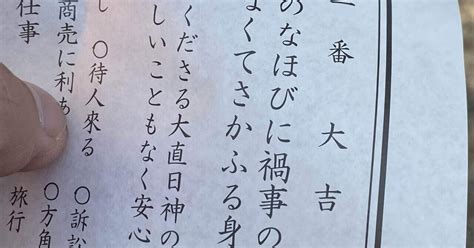 番 大 吉
のなほびに禍事の
よくてさかふる身
くださる大直日神の
しいこともなく安心
し 〇待人來る 〇訴訟
商売に利あ 〇方角
仕事
旅行